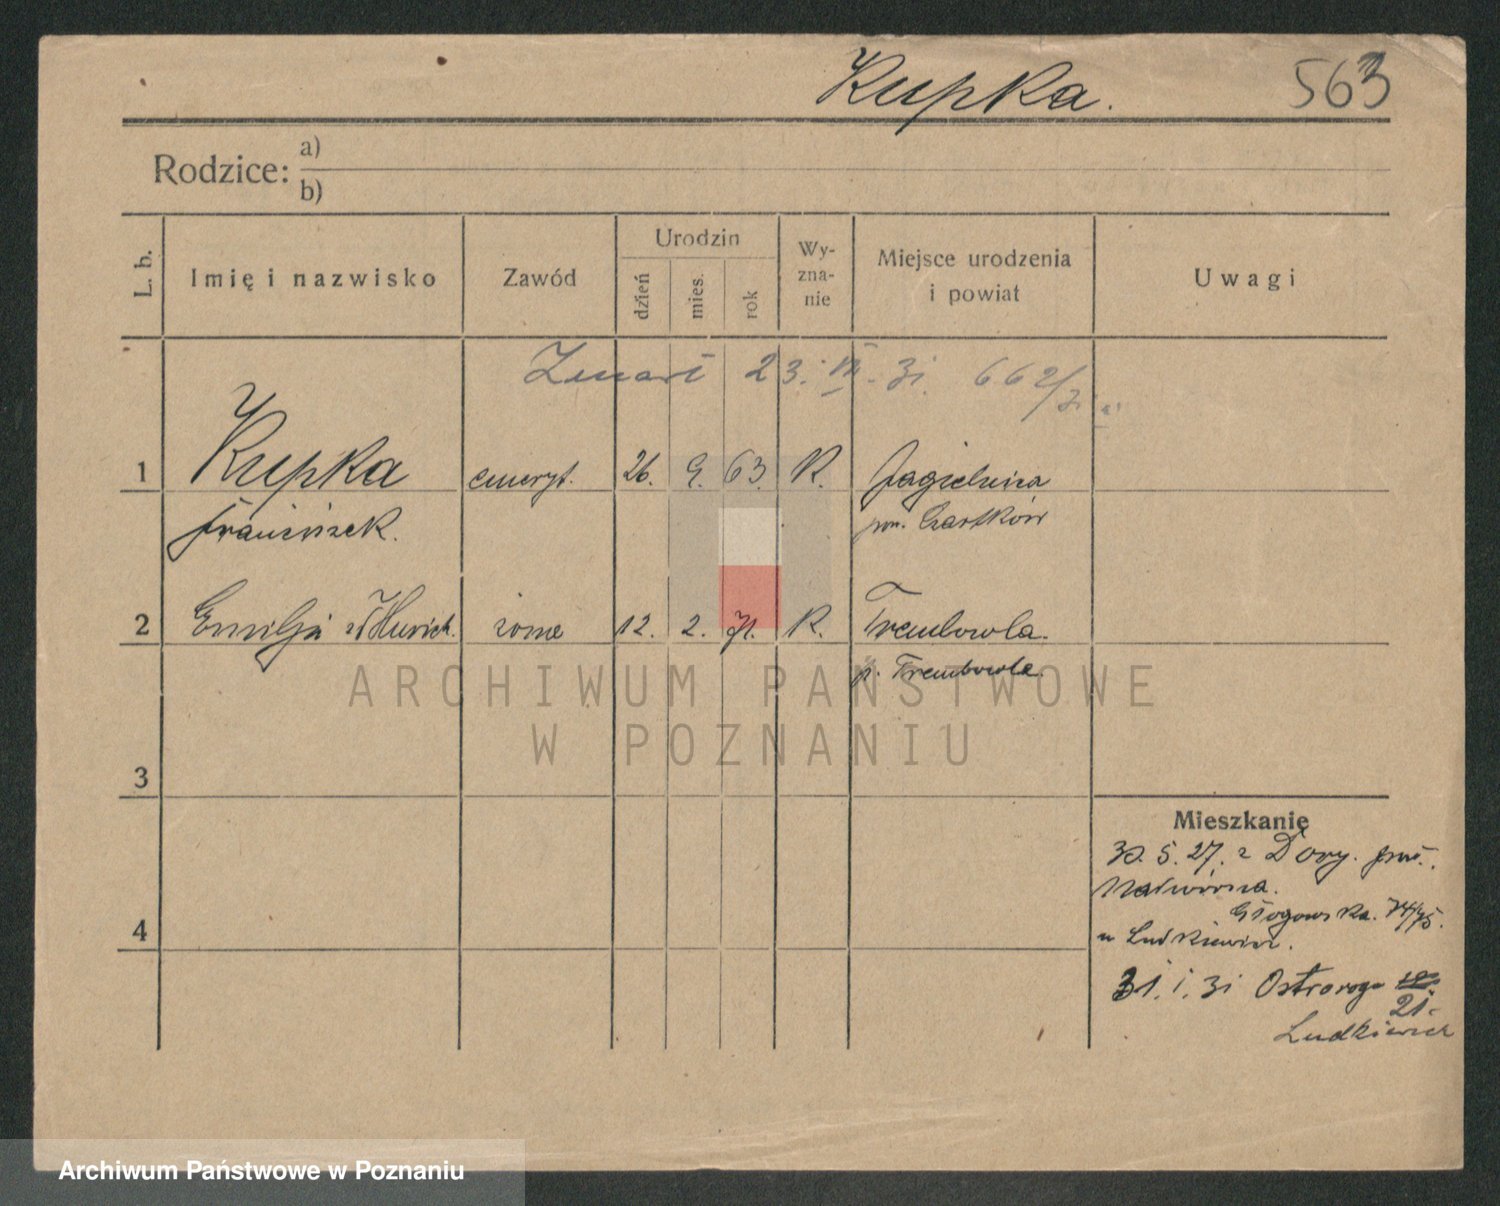 Kupka. 563
Rodzice: a)
b)
L. b. Imię i nazwisko Zawód Urodzin dzień mies. rok Wy-zna-nie Miejsce urodzenia i powiat Uwagi
Zmarł 23. VII. 31. 662/31
1 Kupka emeryt. 26. 9. 63. R. Jagielnica
Franciszek. pow. Czortków
2 Emilja żona 12. 2. 71. R. Trembowla.
p. Trembowla.
ARCHIWUM PAŃSTWOWE
W POZNANIU
3
Mieszkanie
30. 5. 27. z Dory. pow.
Nadwórna.
Głogowska. 74/75.
u Ludkiewicz.
4
31. I. 31 Ostroroga
21.
Ludkiewicz
Archiwum Państwowe w Poznaniu